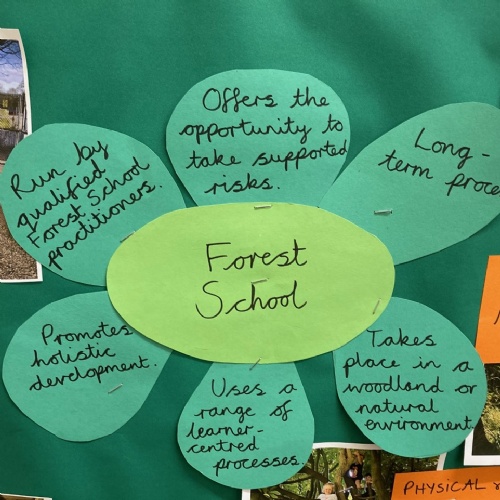 Offers the
opportunity to
take supported
risks.
Long-
term proce
Run by
qualified
Forest School
practitioners.
Forest
School
Promotes
holistic
development.
Uses a
range of
learner-
centred
processes.
Takes
place in a
woodland or
natural
environment.
PHYSICAL